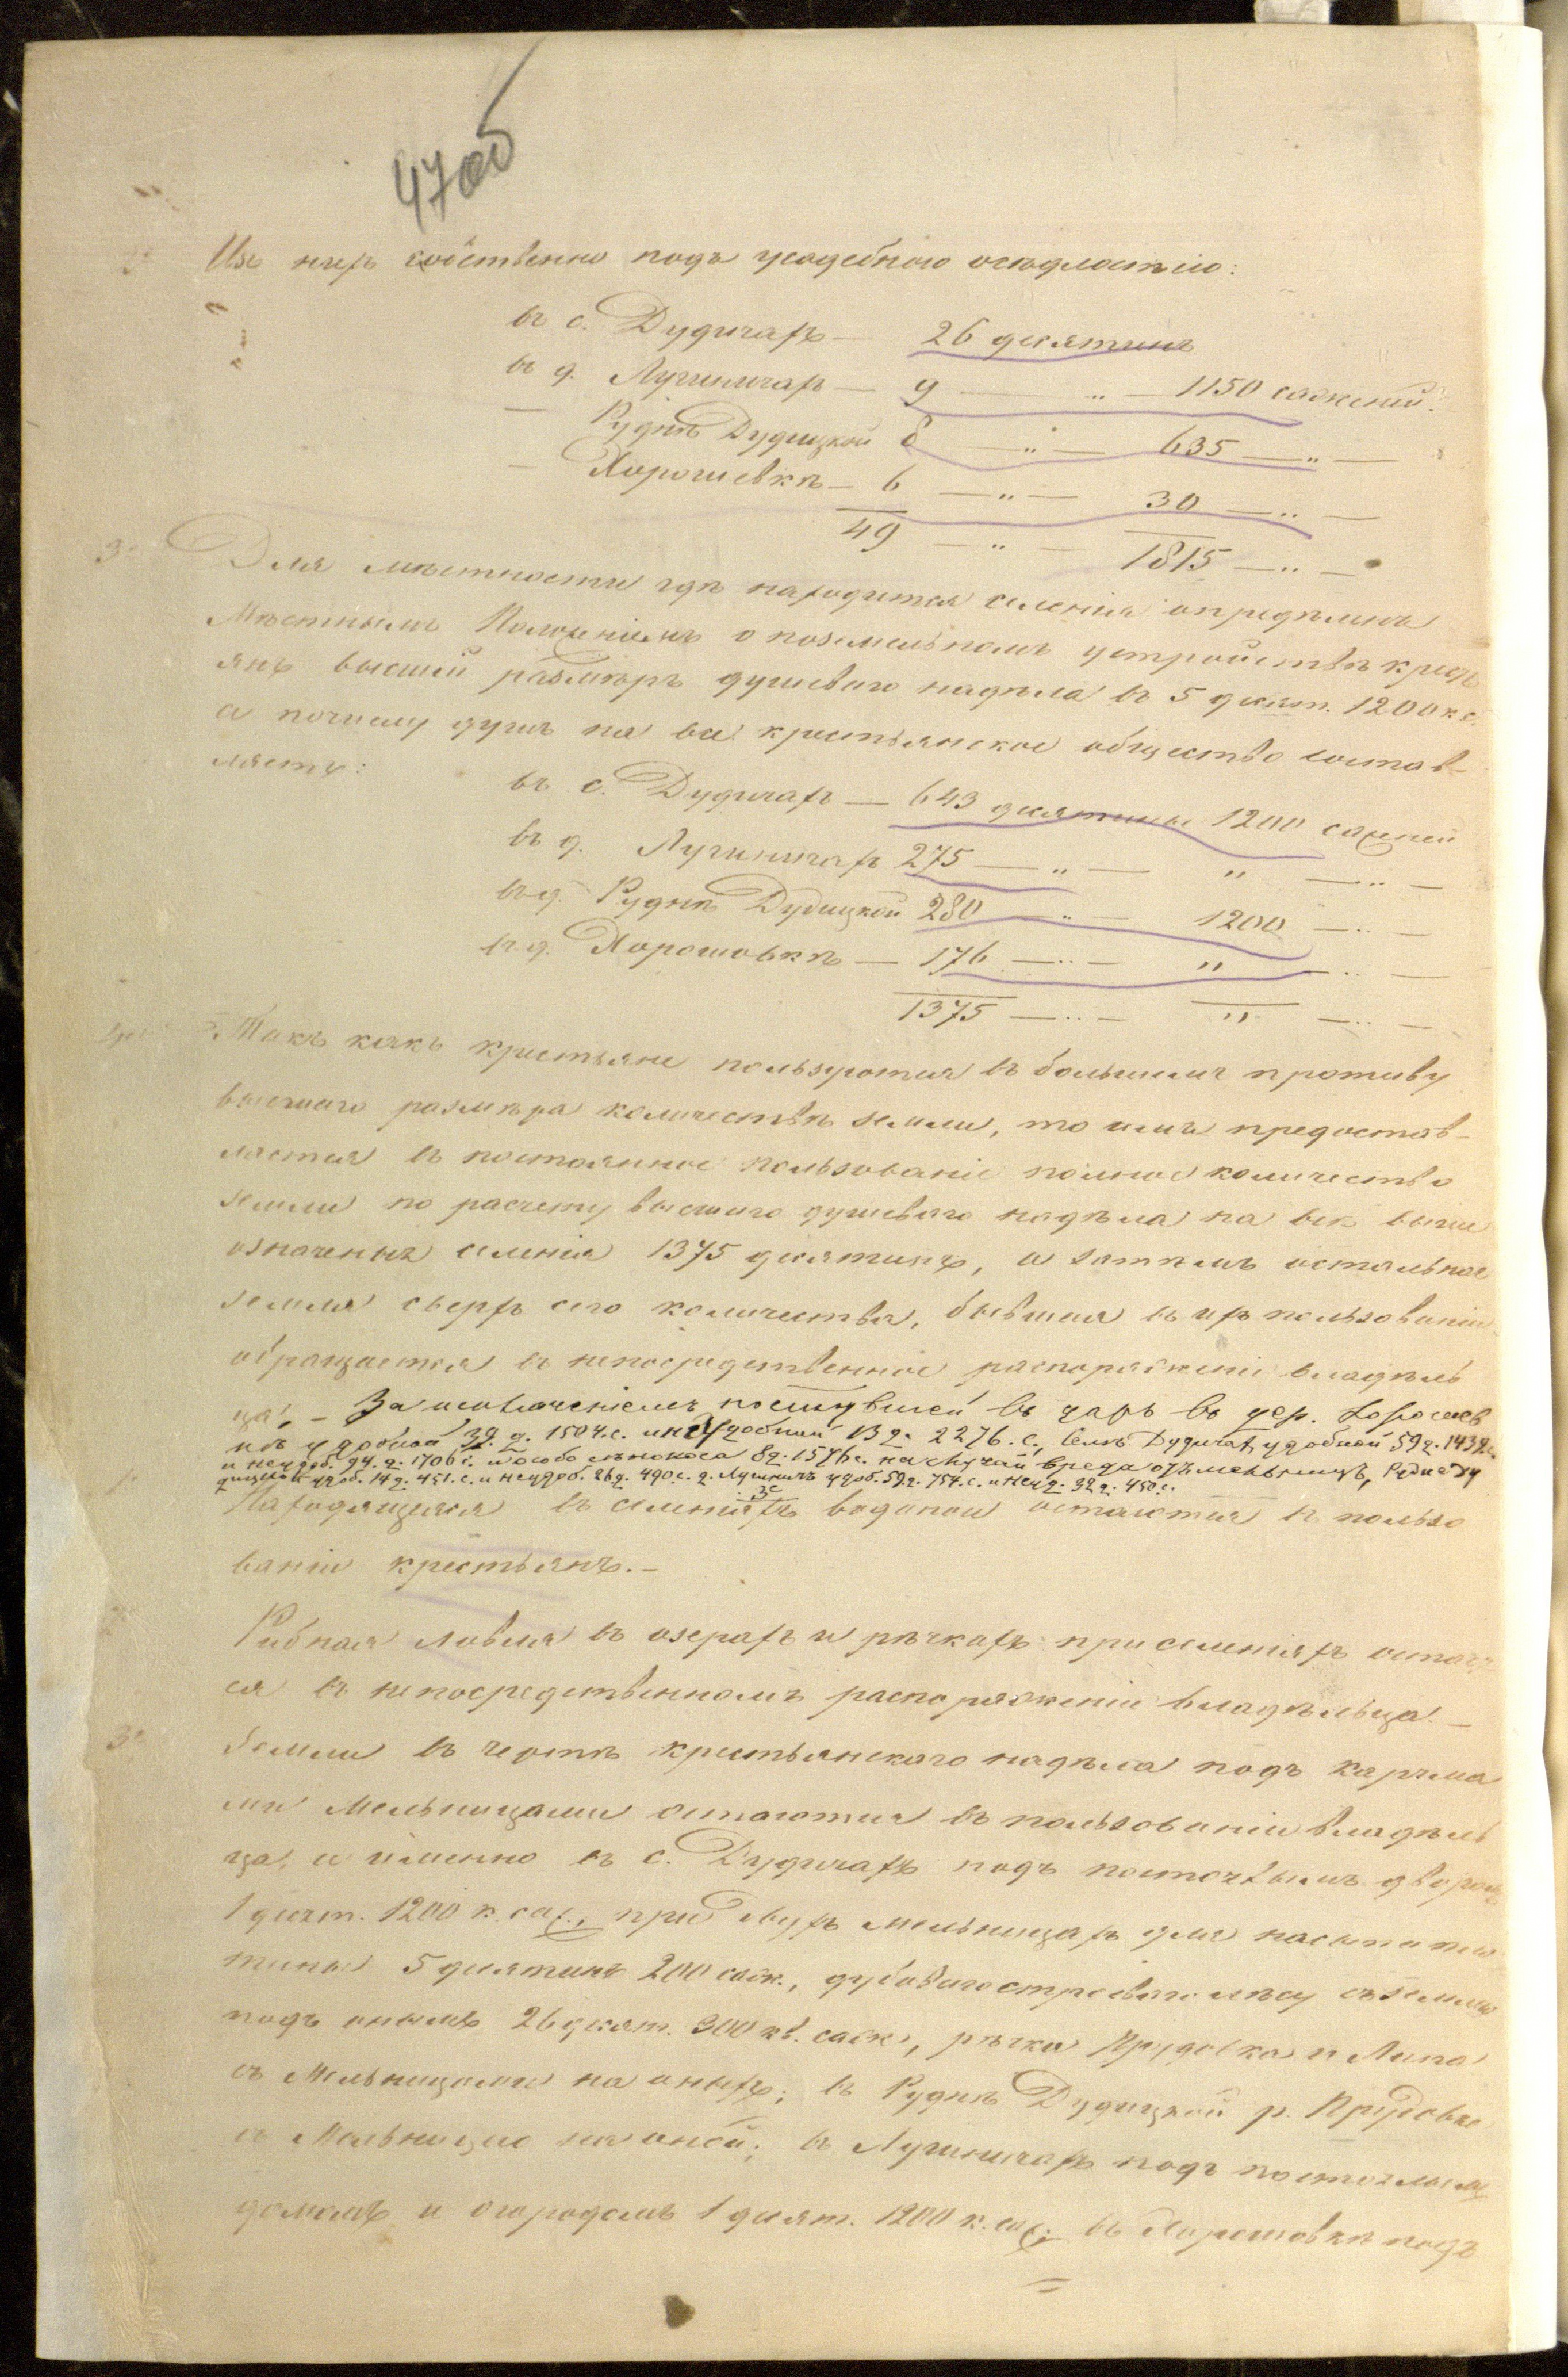 47об
Изъ нихъ собственно подъ усадебною осѣдлостію:
въ с. Дудичахъ — 26 десятинъ
въ д. Лучиничах — 9 — „ — 1150 саженей.
— Руднѣ Дудицкой 8 — „ — 635 — „ —
— Хорошевкѣ — 6 — „ — 30 — „ —
49 — „ — 1815 — „ —
3е Для мѣстности гдѣ находится селенія опредѣленъ
Мѣстнымъ Положеніемъ о поземельномъ устройствѣ крест
янъ высшій размѣръ душеваго надѣла въ 5 десят. 1200 к. с.
а почему душъ на все крестьянское общество состав-
ляетъ:
въ с. Дудичахъ — 643 десятины 1200 сажней
въ д. Лучиничахъ 275 — „ — „ — „ —
въ д. Руднѣ Дудицкой 280 — „ — 1200 — „ —
въ д. Хорошовкѣ — 176 — „ — „ — „ —
1375 — „ — „ — „ —
4е Такъ какъ крестьяне пользуются въ большемъ противу
высшаго размѣра количествѣ земли, то имъ предостав-
ляется въ постоянное пользованіе полное количество
земли по расчету высшаго душеваго надѣла на всѣ выше
означеныя селенія 1375 десятинъ, а затѣмъ остальная
земля сверхъ сего количества, бывшая въ ихъ пользованіи
обращается въ непосредственное распоряженіе владѣль
ца, – За исключеніемъ поступившей въ даръ въ дер. Хорошев
кѣ удобной 39 д. 1504. с. и неудобной 13 д. 2276. с., Селѣ Дудичах, удобной 59 д. 1439 с.
и неудоб. 94. д. 1706 с. и особо сѣнокоса 8 д. 1576 с. на случай вреда отъ мельницъ, Руднѣ Ду
дицкой удоб. 14 д. 451. с. и неудоб. 26 д. 490 с. д. Лучиничъ удоб. 59 д. 754. с. и неуд. 32 д. 450 с.
Находящіеся въ селеніяхъ водопои остаются въ пользо
ваніи крестьянъ. –
Рибная ловля въ озерахъ и рѣчкахъ при селеніяхъ остает
ся въ непосредственномъ распоряженіи владѣльца. –
3е Земли въ чертѣ крестьянскаго надѣла подъ карчма
ми Мельницами остаются въ пользованіи владѣль
ца, и именно въ с. Дудичахъ подъ постоялымъ дворомъ
1 десят. 1200 к. саж., при двухъ мельницахъ для насыпи пло
тины 5 десятинъ 200 саж., дубоваго строеваго лѣсу съ землею
подъ онымъ 26 десят. 300 кв. саж., рѣчки Прудовка и Липа
съ Мельницами на оныхъ; въ Руднѣ Дудицкой р. Прудовка
съ Мельницею на оной; въ Лучиничахъ подъ постоялымъ
домомъ и огородомъ 1 десят. 1200 к. саж; въ Хорошовкѣ подъ